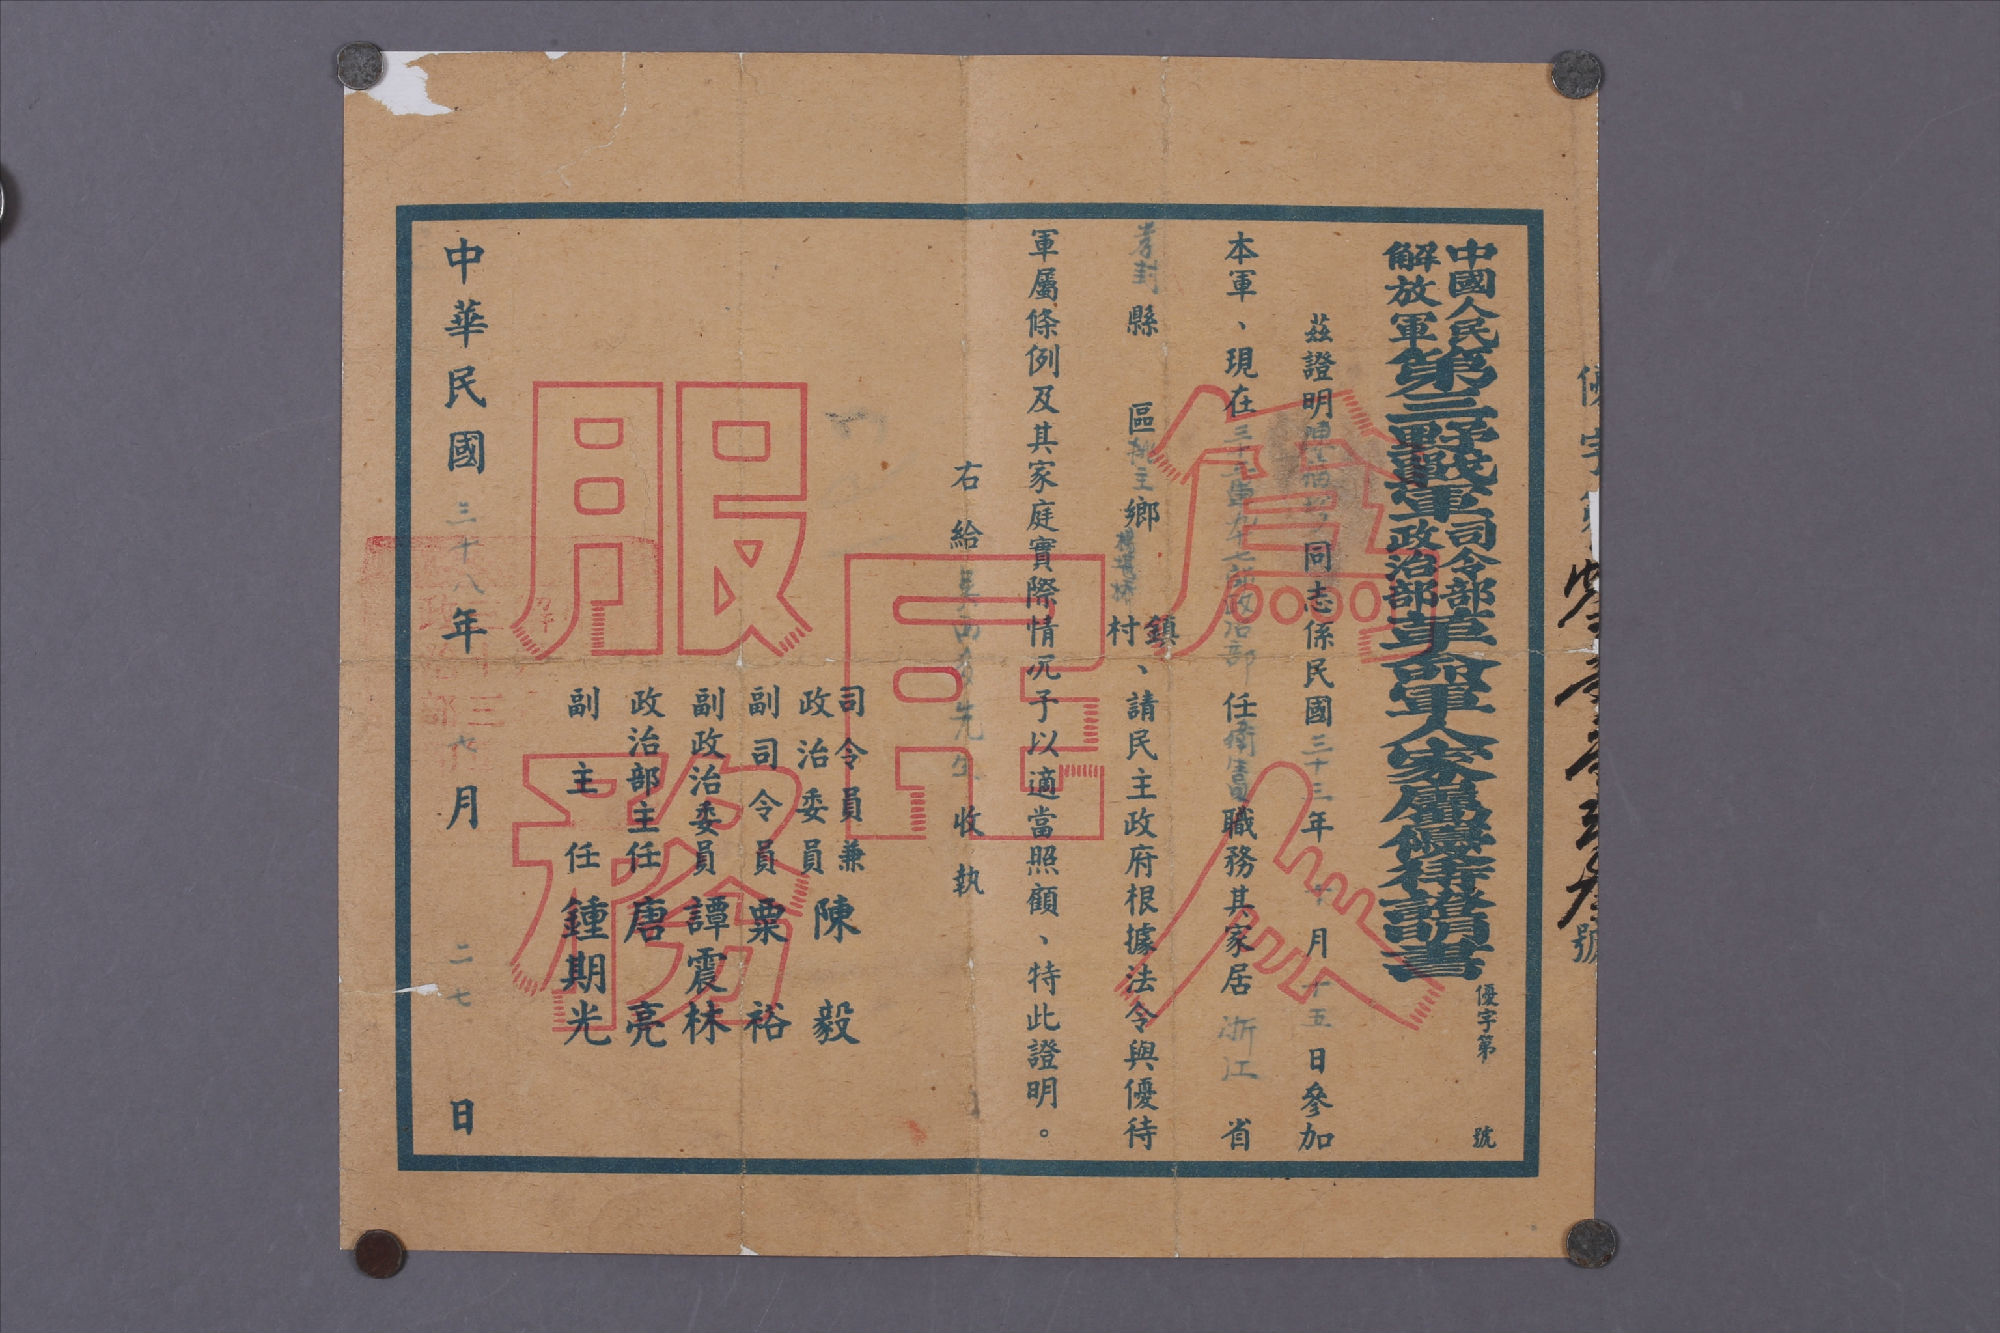 號
中國人民解放軍第三野戰軍司令部政治部革命軍人家屬優待證明書
優字第 號
茲證明 同志係民國三十三年十月十五日參加
本軍、現在三十 軍九十七師政治部任 職務其家居浙江省
縣 區 主鄉 鎮村、請民主政府根據法令與優待
軍屬條例及其家庭實際情況予以適當照顧、特此證明。
右給 先生收執
司令員兼政治委員 陳毅
副司令員 粟裕
副政治委員 譚震林
政治部主任 唐亮
副主任 鍾期光
中華民國三十八年 月二七日
為人民服務